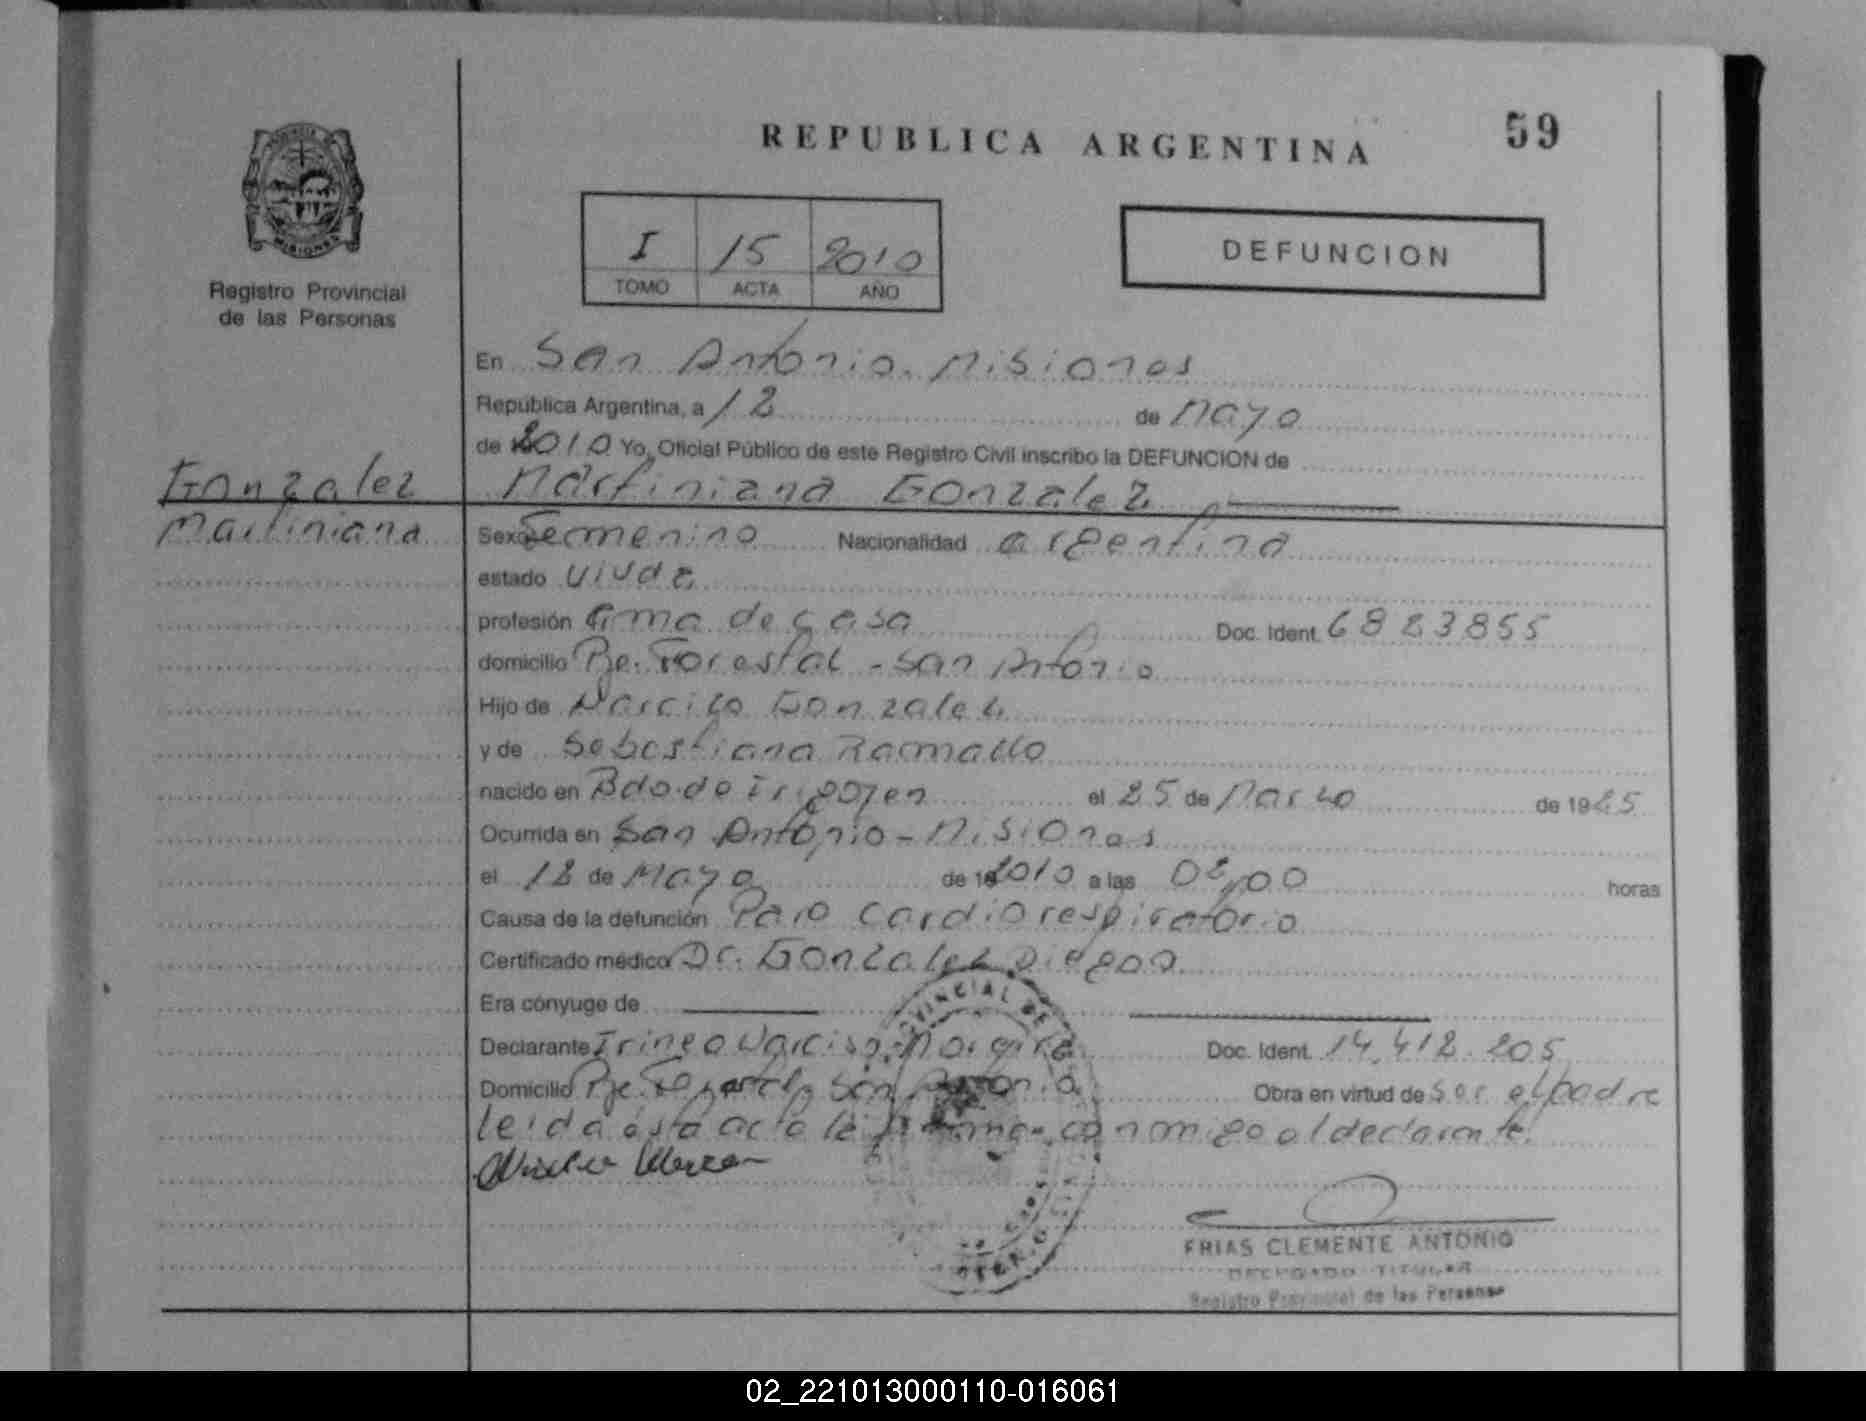 59
REPUBLICA ARGENTINA
PROVINCIA
MISIONES
Registro Provincial
de las Personas
I 15 2010
TOMO ACTA AÑO
DEFUNCION
En San Antonio. Misiones
República Argentina, a 12 de Mayo
de 2010 Yo, Oficial Público de este Registro Civil inscribo la DEFUNCION de
Gonzalez
Martiniana
Martiniana Gonzalez
Sexo Femenino Nacionalidad argentina
estado viuda
profesión ama de casa Doc. Ident. 6823855
domicilio Pje. Forestal - San Antonio
Hijo de Narciso Gonzalez
y de Sebastiana Ramallo
nacido en Bdo. de Irigoyen el 25 de Marzo de 19
Ocurrida en San Antonio - Misiones
el 12 de Mayo de 2010 a las 02,00 horas
Causa de la defunción Paro cardiorespiratorio
Certificado médico Dr. Gonzalez
Era cónyuge de
Declarante Irineo Doc. Ident. 14.412.205
Domicilio Pje. San Antonio Obra en virtud de Ser el padre
leida ésta acta la conmigo el declarante.
FRIAS CLEMENTE ANTONIO
DELEGADO TITULAR
Registro Provincial de las Personas
02_221013000110-016061